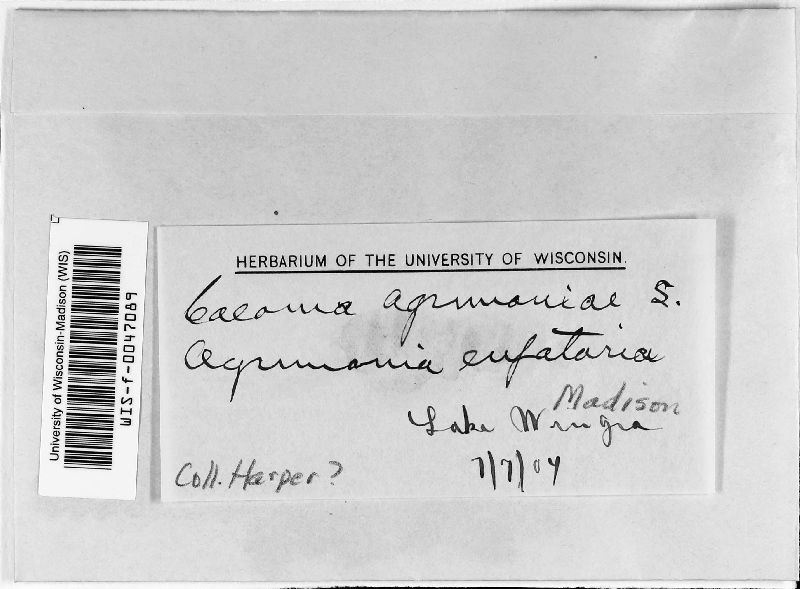 University of Wisconsin-Madison (WIS)
WIS-f-0047089
HERBARIUM OF THE UNIVERSITY OF WISCONSIN.
Caeoma agrimoniae S.
Agrimonia eupatoria
Madison
Lake Wingra
7/7/04
Coll. Harper?